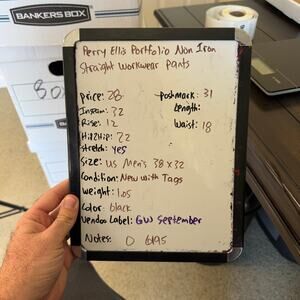 BANKERS BOX
Perry Ellis Portfolio Non Iron
Straight Workwear Pants
price: 28
Poshmark: 31
Inseam: 32
Length:
Rise: 12
Waist: 18
Hip2Hip: 22
Stretch: Yes
Size: US Men's 38 x 32
Condition: New with Tags
Weight: 1.05
Color: black
Vendoo Label: GW September
Notes: 0 6195